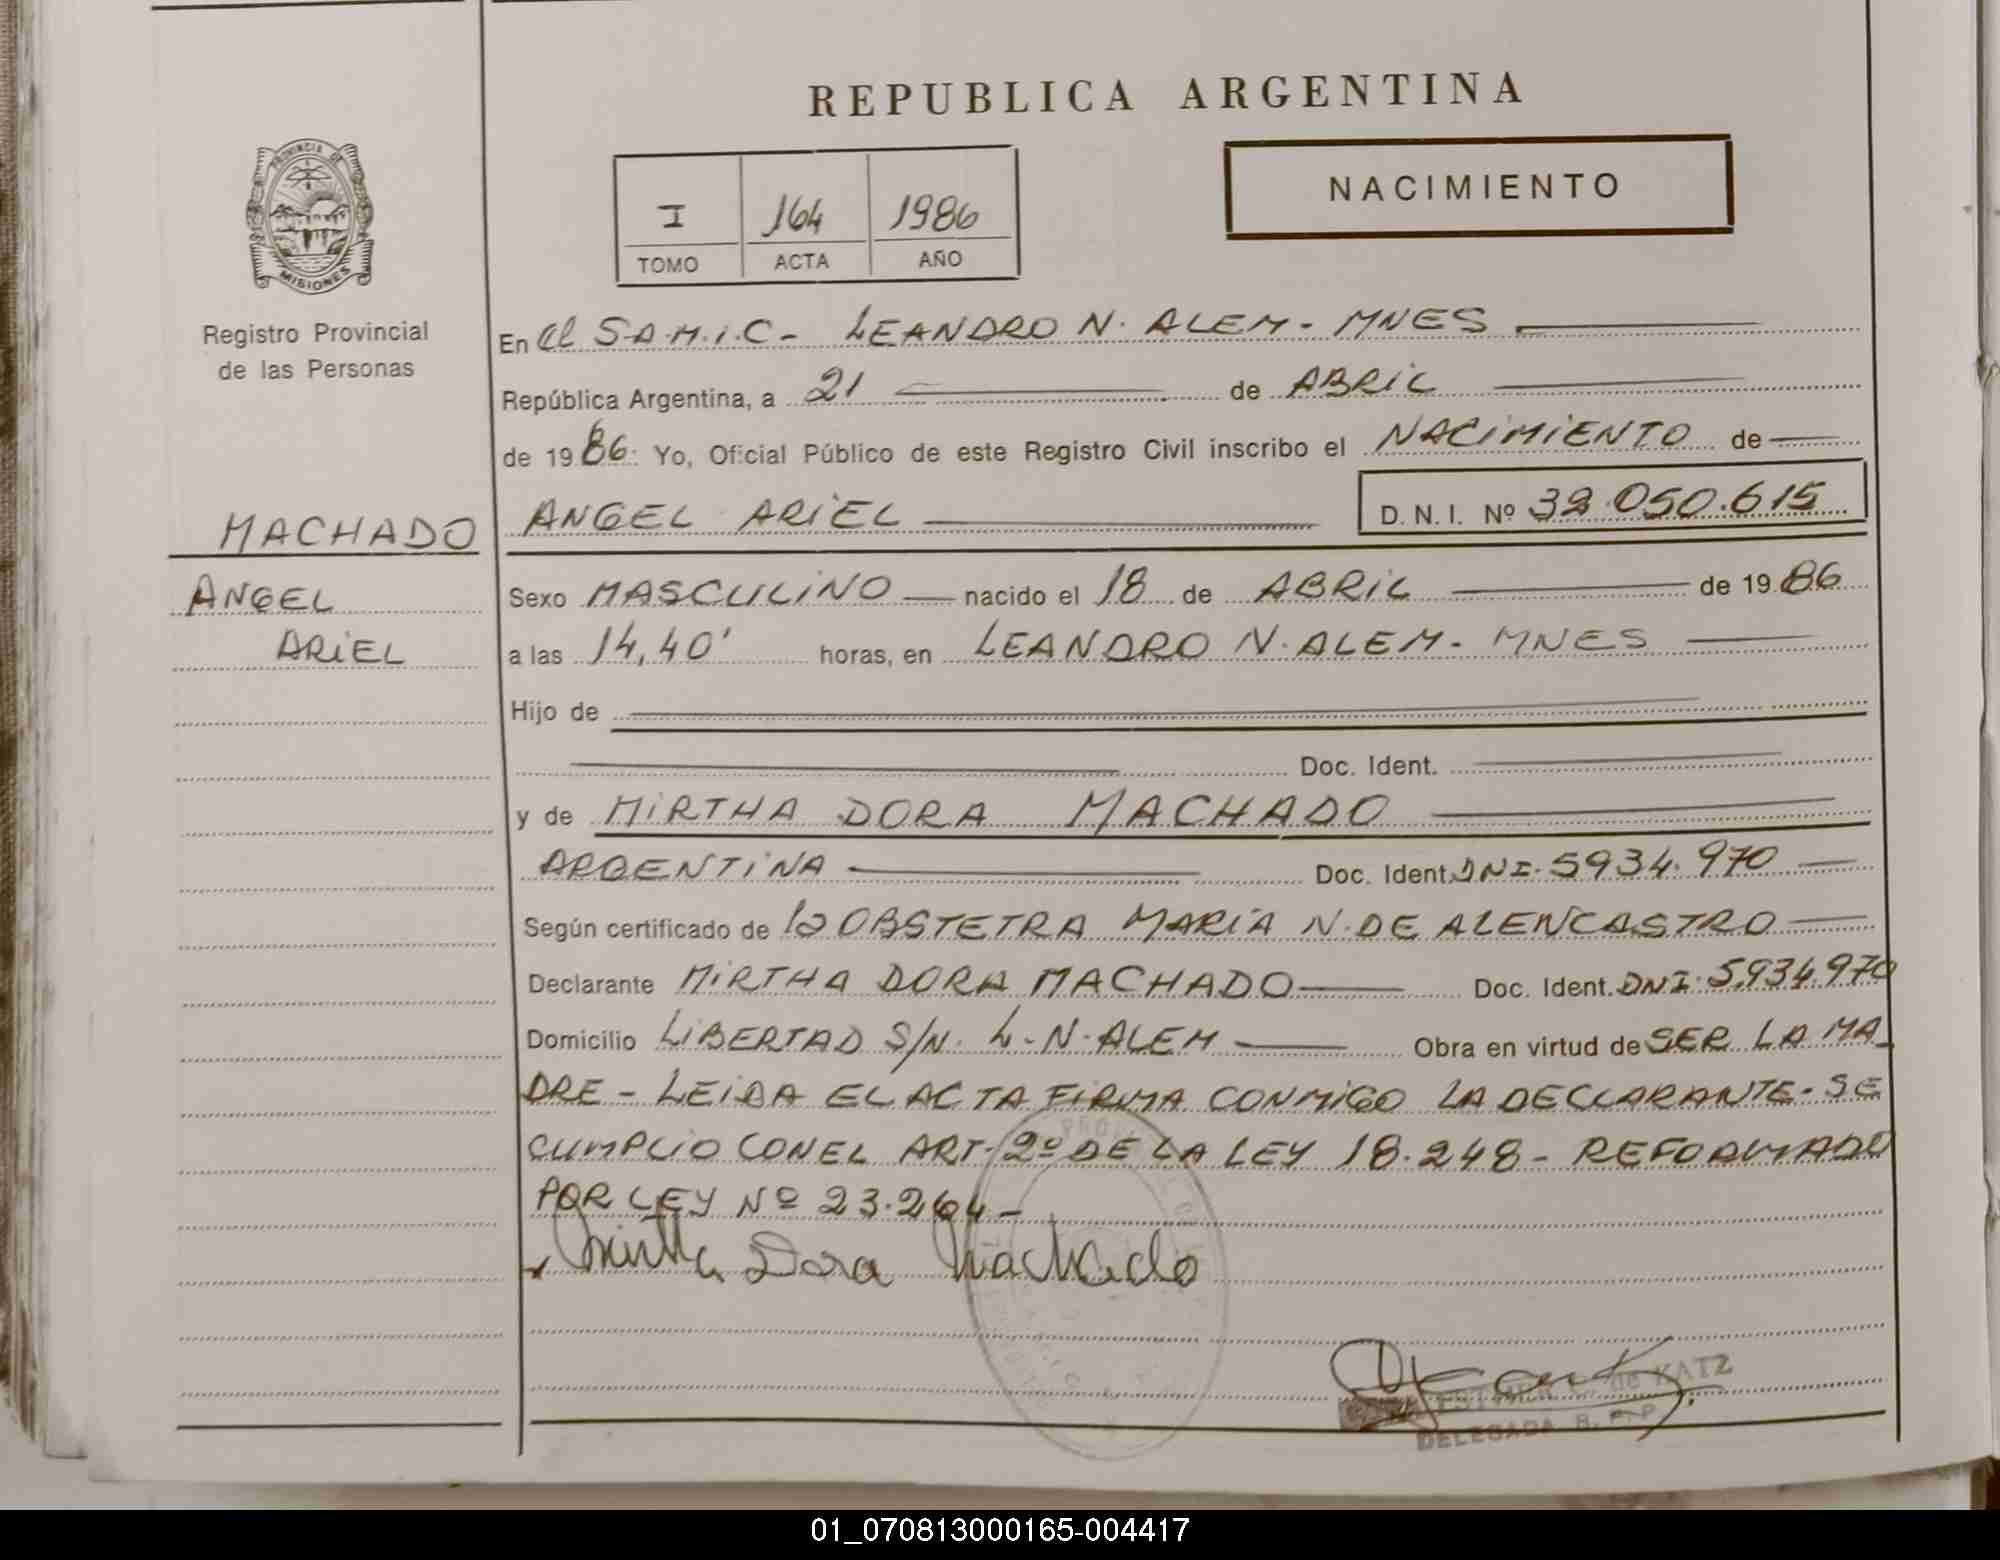 REPUBLICA ARGENTINA
NACIMIENTO
I 164 1986
TOMO ACTA AÑO
PROVINCIA DE
MISIONES
Registro Provincial
de las Personas
En el S.A.M.I.C- LEANDRO N. ALEM- MNES
República Argentina, a 21 de ABRIL
de 1986. Yo, Oficial Público de este Registro Civil inscribo el NACIMIENTO de
MACHADO
ANGEL ARIEL D. N. I. Nº 32.050.615
ANGEL
ARIEL
Sexo MASCULINO nacido el 18 de ABRIL de 1986
a las 14,40' horas, en LEANDRO N. ALEM- MNES
Hijo de
Doc. Ident.
y de MIRTHA DORA MACHADO
ARGENTINA Doc. Ident. DNI-5934.970
Según certificado de la OBSTETRA MARIA N. DE ALENCASTRO
Declarante MIRTHA DORA MACHADO Doc. Ident. DNI-5.934.970
Domicilio LIBERTAD S/N. L-N-ALEM Obra en virtud de SER LA MA_
DRE - LEIDA EL ACTA FIRMA CONMIGO LA DECLARANTE- SE
CUMPLIO CON EL ART-2º DE LA LEY 18.248- REFORMADO
POR LEY Nº 23.264-
Mirtha Dora Machado
ESTHER C. de KATZ
DELEGADA R. P. P.
01_070813000165-004417